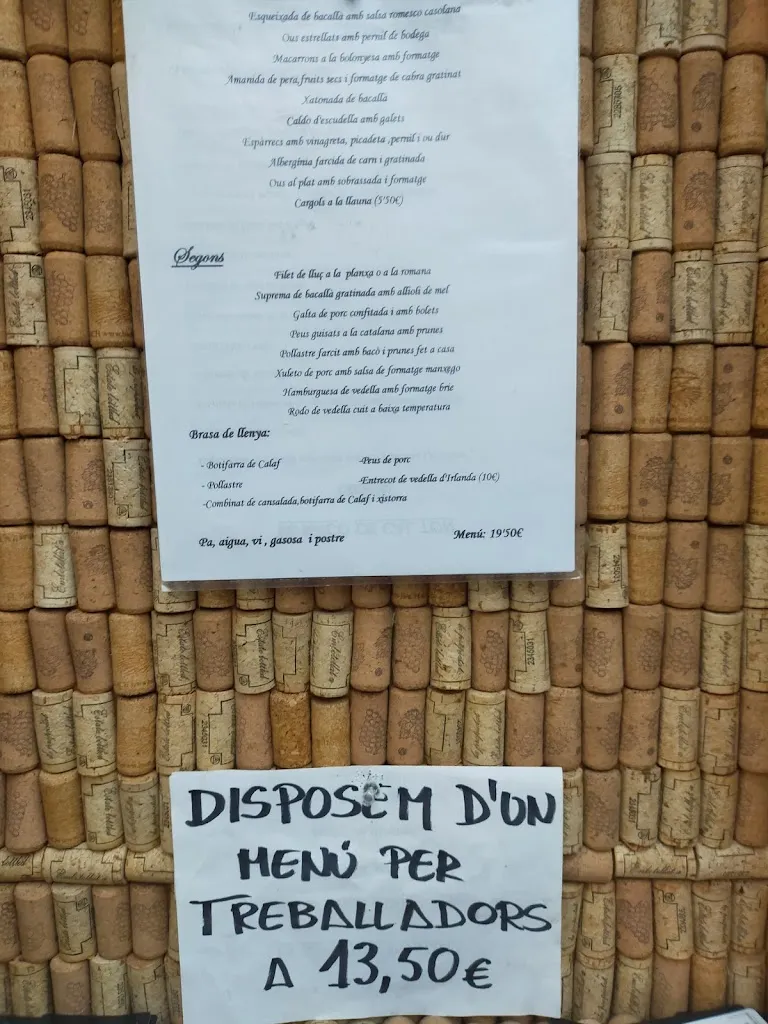 Esqueixada de bacallà amb salsa romesco casolana
Ous estrellats amb pernil de bodega
Macarrons a la bolonyesa amb formatge
Amanida de pera,fruits secs i formatge de cabra gratinat
Xatonada de bacallà
Caldo d'escudella amb galets
Espàrrecs amb vinagreta, picadeta ,pernil i ou dur
Albergínia farcida de carn i gratinada
Ous al plat amb sobrassada i formatge
Cargols a la llauna (5'50€)
Segons
Filet de lluç a la planxa o a la romana
Suprema de bacallà gratinada amb allioli de mel
Galta de porc confitada i amb bolets
Peus guisats a la catalana amb prunes
Pollastre farcit amb bacó i prunes fet a casa
Xuleto de porc amb salsa de formatge manxego
Hamburguesa de vedella amb formatge brie
Rodo de vedella cuit a baixa temperatura
Brasa de llenya:
- Botifarra de Calaf -Peus de porc
- Pollastre -Entrecot de vedella d'Irlanda (10€)
-Combinat de cansalada,botifarra de Calaf i xistorra
Pa, aigua, vi , gasosa i postre Menú: 19'50€
DISPOSEM D'UN
MENÚ PER
TREBALLADORS
A 13,50€